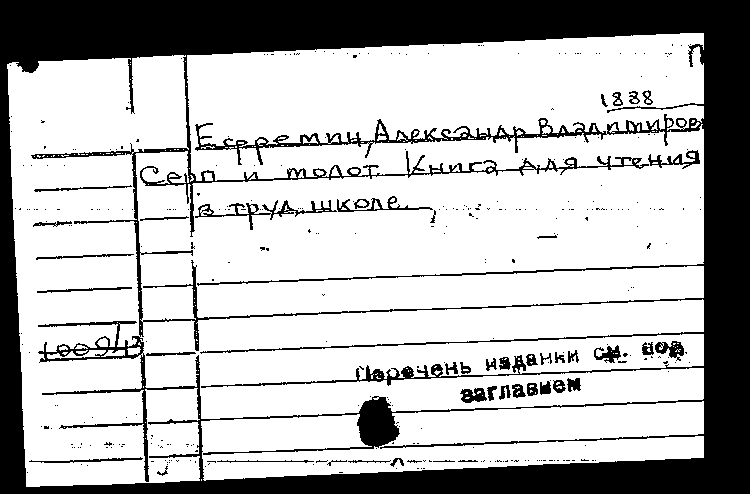 П
1888
Ефремин, Александр Владимиров
Серп и молот. Книга для чтения
в труд. школе.
10094
Перечень издании см. под
заглавием